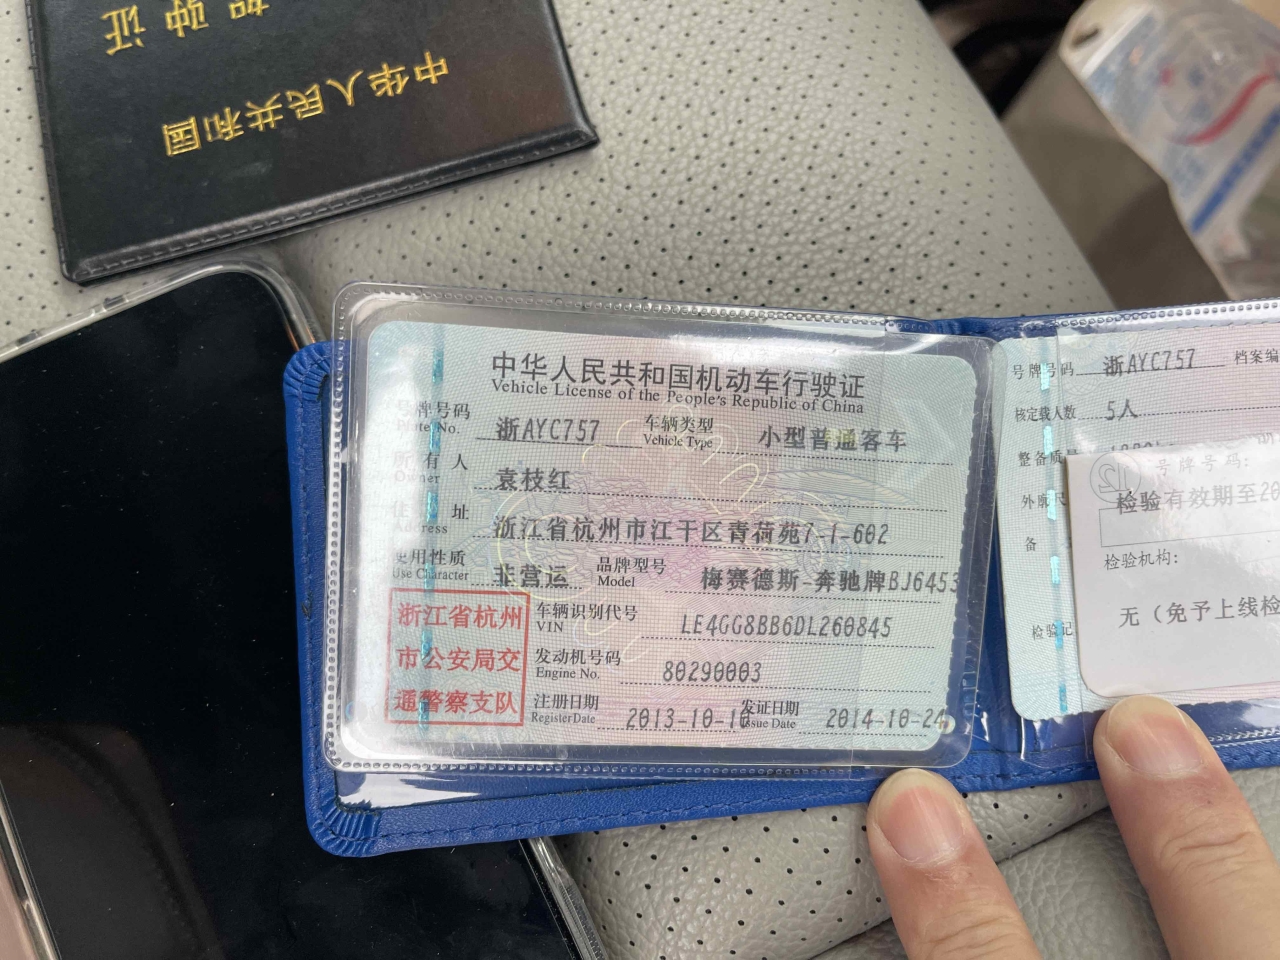 驾驶证
中华人民共和国
中华人民共和国机动车行驶证
Vehicle License of the People's Republic of China
号牌号码 浙AYC757 车辆类型 小型普通客车
Plate No. Vehicle Type
所有人 袁枝红
Owner
住址 浙江省杭州市江干区青荷苑7-1-602
Address
使用性质 非营运 品牌型号 梅赛德斯-奔驰牌BJ6453
Use Character Model
浙江省杭州
市公安局交
通警察支队
车辆识别代号 LE4GG8BB6DL260845
VIN
发动机号码 80290003
Engine No.
注册日期 2013-10-1 发证日期 2014-10-24
Register Date Issue Date
号牌号码 浙AYC757 档案编
核定载人数 5人
整备质量
外廓尺
备
检验记
号牌号码:
检验有效期至20
检验机构:
无（免予上线检